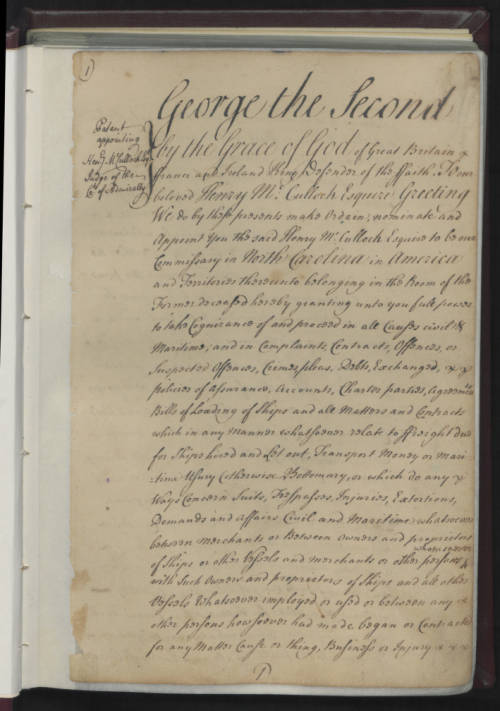 (1)
Patent
appointing
Henry McCulloch Esq
Judge of the
Ct of Admiralty
George the Second
by the Grace of God of Great Britain
France and Ireland King Defender of the ffaith. To our
beloved Henry Mc Culloch Esquire Greeting
We do by these presents make Ordain, nominate and
Appoint You the said Henry Mc Culloch Esquire to be our
Commissary in North Carolina in America
and Territories thereunto belonging in the Room of the
Former deceased hereby granting unto you full power
to take Cognizance of and proceed in all Causes civil &
Maritime, and in Complaints, Contracts, Offences, or
Suspected Offences, Crimes, pleas, Debts, Exchanges, & x
policies of assurance, Accounts, Charter parties, Agreemts
Bills of Loading of Ships and all Matters and Contracts
which in any manner whatsoever relate to ffreight due
for Ships hired and let out, Transport Money or mari-
-time Usury (otherwise Bottomary, or which do any x
Ways Concern Suits, Trespasses, Injuries, Extortions,
Demands and affairs Civil and Maritime whatsoever
between merchants or Between owners and proprietors
of Ships or other Vessels and merchants or other persons whomsoever
with such Owners and proprietors of Ships and all other
Vessels Whatsoever employed or used or between any x
other persons howsoever had made began or Contracted
for any Matter Cause or thing, Business or Injury x x x
1